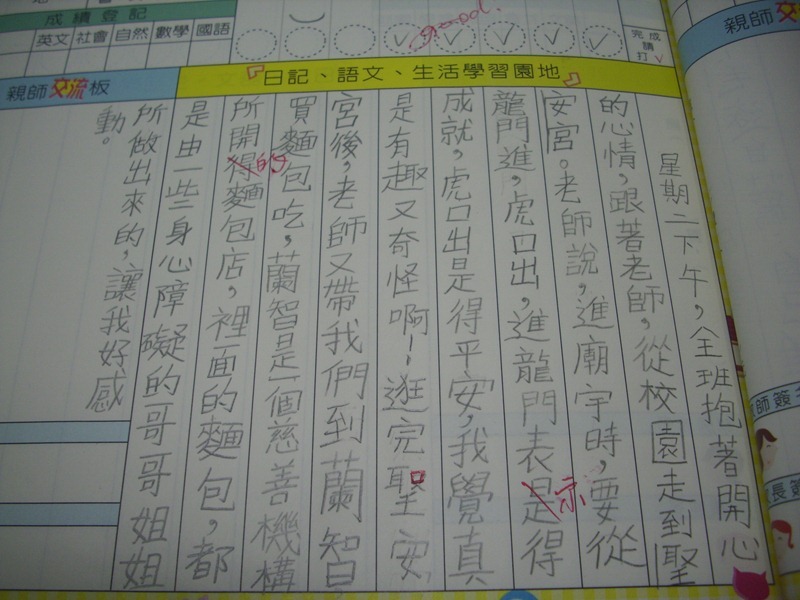 成績登記
英文 社會 自然 數學 國語
完成請打✓
good.
親師交流板
『日記、語文、生活學習園地』
親師交
星期二下午，全班抱著開心
的心情，跟著老師，從校園走到聖
安宮。老師說，進廟宇時，要從
龍門進，虎口出，進龍門表是示得
成就，虎口出是得平安，我覺真
是有趣又奇怪啊！逛完聖安
宮後，老師又帶我們到蘭智
買麵包吃，蘭智是一個慈善機構
所開得的麵包店，裡面的麵包，都
是由一些身心障礙的哥哥姐姐
所做出來的，讓我好感
動。
師簽
長簽